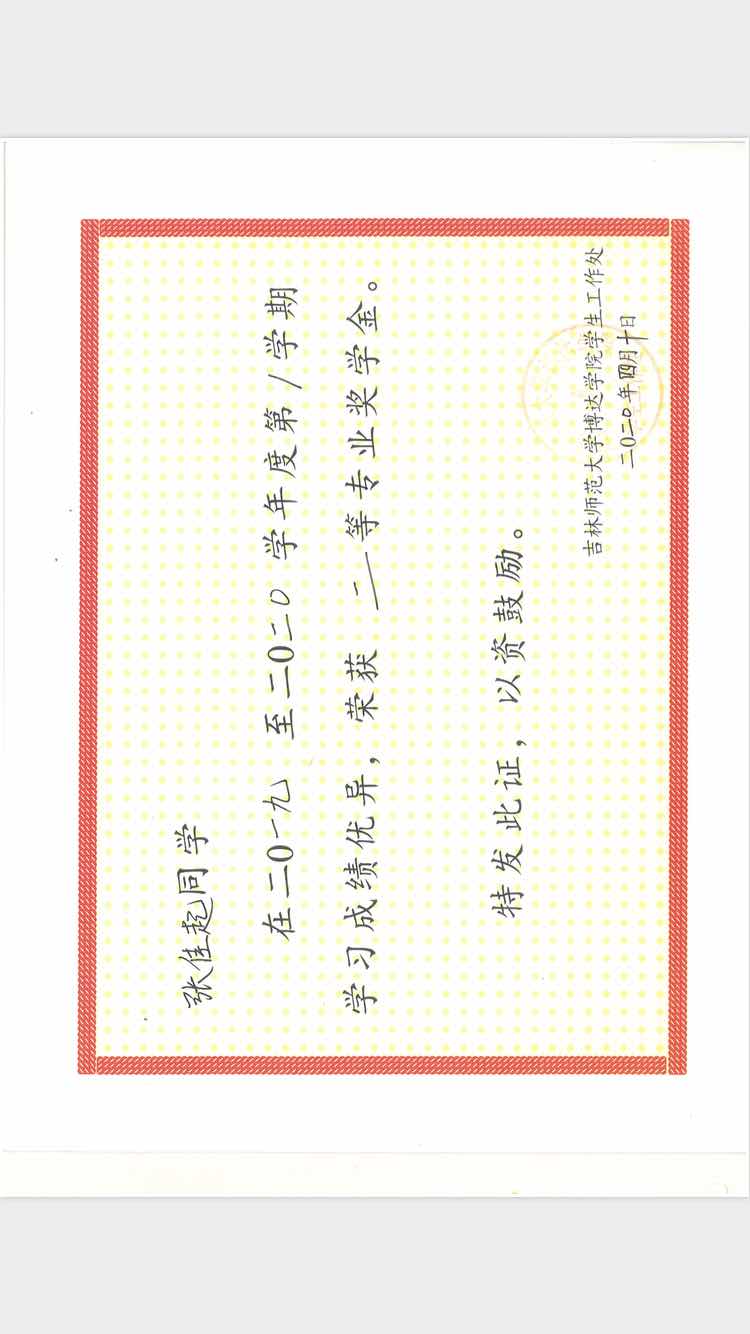 张佳起同学
在二〇一九 至二〇二〇 学年度第1学期
学习成绩优异，荣获 二等专业奖学金。
特发此证，以资鼓励。
吉林师范大学博达学院学生工作处
二〇二〇年四月十日